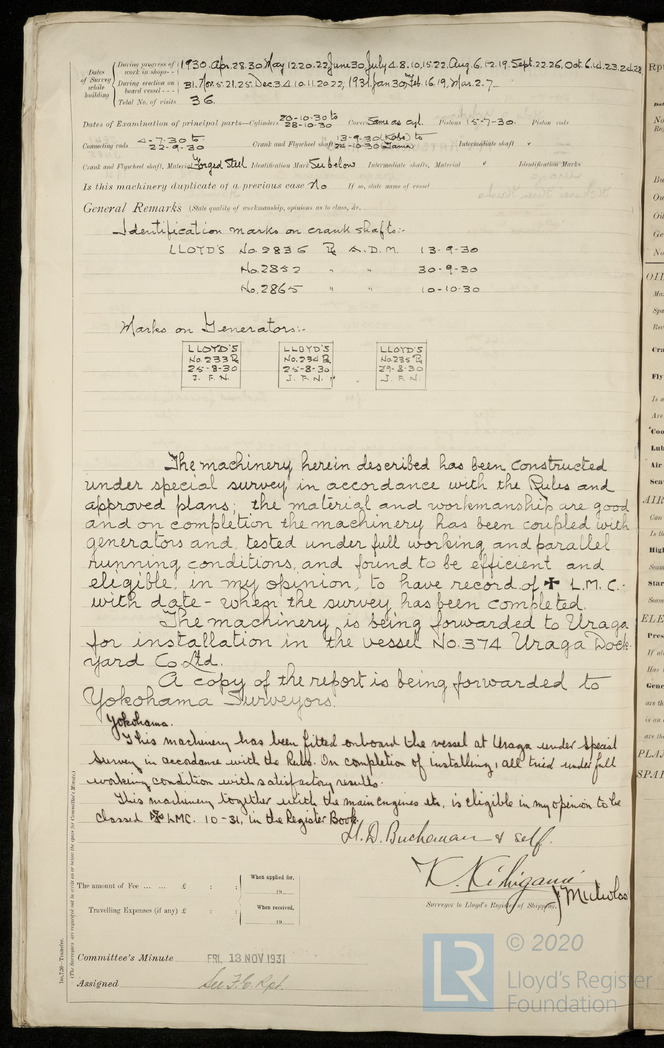 Dates of Survey while building
During progress of work in shops - - 1930. Apr. 28. 30 May 12. 20. 22 June 30. July 4. 8. 10. 15. 22. Aug. 6. 12. 19. Sept. 22. 26. Oct. 6. 14. 23. 24. 28
During erection on board vessel - - - 31. Nov. 5. 21. 25. Dec. 3. 4. 10. 11. 20. 22, 1931. Jan 30. Feb. 16. 19. Mar. 2. 7.
Total No. of visits 36.
Dates of Examination of principal parts—Cylinders 20-10-30 to 28-10-30 Covers Same as cyl. Pistons 15-7-30. Piston rods
Connecting rods 4-7-30 to 22-9-30 Crank and Flywheel shaft 13-9-30 (Kobe) to 24-10-30 Intermediate shaft "
Crank and Flywheel shaft, Material Forged Steel Identification Mark See below Intermediate shafts, Material " Identification Marks
Is this machinery duplicate of a previous case No If so, state name of vessel
General Remarks (State quality of workmanship, opinions as to class, &c.
Identification marks on crank shafts:-
LLOYD'S No. 2836 LR A.D.M. 13-9-30
No. 2852 " " 30-9-30
No. 2865 " " 10-10-30
Marks on Generators:-
LLOYD'S No. 233 LR 25-8-30 J.F.N.
LLOYD'S No. 234 LR 25-8-30 J.F.N.
LLOYD'S No. 235 LR 29-8-30 J.F.N.
The machinery herein described has been constructed
under special survey in accordance with the Rules and
approved plans; the material and workmanship are good
and on completion the machinery has been coupled with
generators and tested under full working and parallel
running conditions, and found to be efficient and
eligible, in my opinion, to have record of ✠ L.M.C.-
with date - when the survey has been completed.
The machinery is being forwarded to Uraga
for installation in the vessel No. 374 Uraga Dock-
yard Co. Ltd.
A copy of the report is being forwarded to
Yokohama Surveyors.
Yokohama.
This machinery has been fitted onboard the vessel at Uraga under Special
Survey in accordance with the Rules. On completion of installing, all tried under full
working condition with satisfactory results.
This machinery together with the main engines etc, is eligible in my opinion to be
classed LMC. 10-31, in the Register Book.
H. D. Buchanan & self.
K. Kishigami
The amount of Fee ... ... £ : : When applied for, 19
Travelling Expenses (if any) £ : : When received, 19
Surveyor to Lloyd's Register of Shipping.
Committee's Minute FRI. 13 NOV 1931
Assigned See F.E. Rpt.
(The Surveyors are requested not to write on or below the space for Committee's Minute.)
© 2020
LR
Lloyd's Register
Foundation